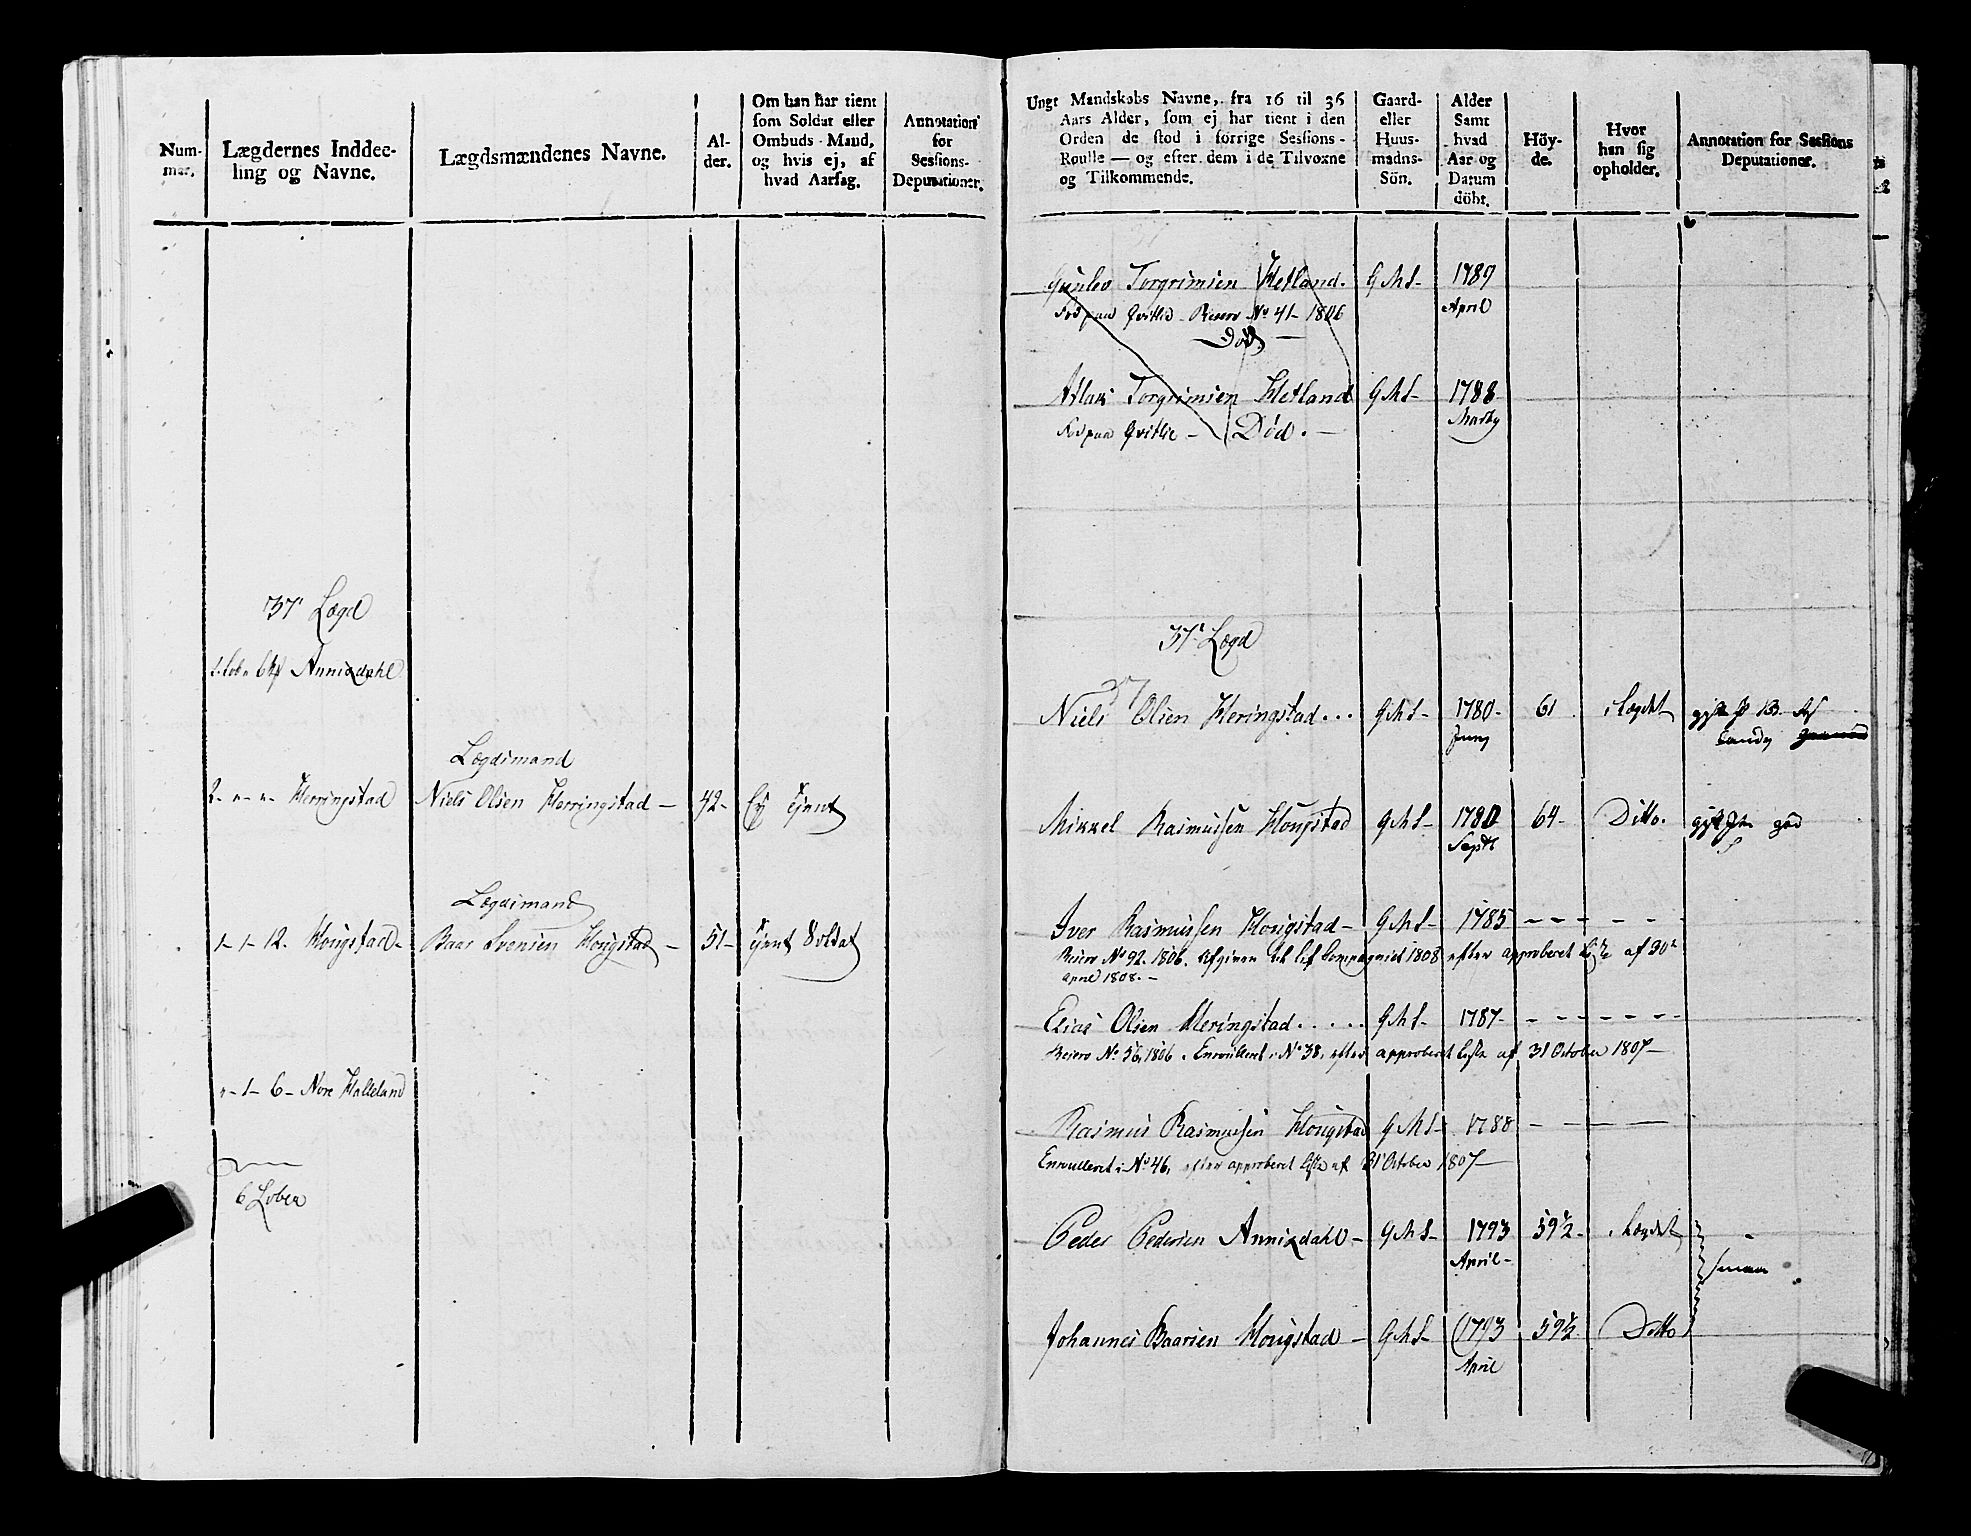 Num-
mer.
Lægdernes Inddee-
ling og Navne.
Lægdsmændenes Navne.
Al-
der.
Om han har tient
som Soldat eller
Ombuds-Mand,
og hvis ej, af
hvad Aarsag.
Annotation
for
Sessions-
Deputationer.
37 Lægd
Annixdahl
Lægdsmand
2- Herringstad Niels Olsen Herringstad - 42- Ey tient
Lægdsmand
1- 1- 12. Hougstad- Baar Svensen Hougstad - 51- tient Soldat
- 1- 6- Nore Halleland
6 Lober
Ungt Mandskabs Navne, fra 16 til 36
Aars Alder, som ej har tient i den
Orden de stod i forrige Sessions-
Roulle — og efter dem i de Tilvoxne
og Tilkommende.
Gaard-
eller
Huus-
mands-
Sön.
Alder
Samt
hvad
Aar og
Datum
döbt.
Höy-
de.
Hvor
han sig
opholder.
Annotation for Sessions
Deputationer.
Gunlev Torgrimsen Hetland. G M S- 1789
Fød paa Qvitlie - Reserv No 41- 1806 April
Død -
Aslak Torgrimsen Hetland G M S- 1788
Fød paa Qvitlie - Død. - Marty
37 Lægd
37
Niels Olsen Heringstad... G M S- 1780- 61 i Lægdet
Juny
Mikkel Rasmussen Hougstad G M S- 1780 64- Ditto. god
Septr
Iver Rasmussen Hougstad - G M S- 1785 - - - - - -
Reserv No 92. 1806. Afgiven til Lif Compagniet 1808 efter approberet Liste af 30te
april 1808. -
Elias Olsen Heringstad..... G M S- 1787- - - - - - -
Reserv No 56, 1806. Enrulleret i No 38, efter approberet Liste af 31 October 1807-
Rasmus Rasmussen Hougstad G M S- 1788 - - -
Enrulleret i No 46, efter approberet Liste af 31 October 1807-
Peder Pedersen Annixdahl - G M S- 1793 59 1/2- i Lægdet
April- smaa
Johannes Baarsen Hougstad - G M S- 1793 59 1/2 Ditto
April